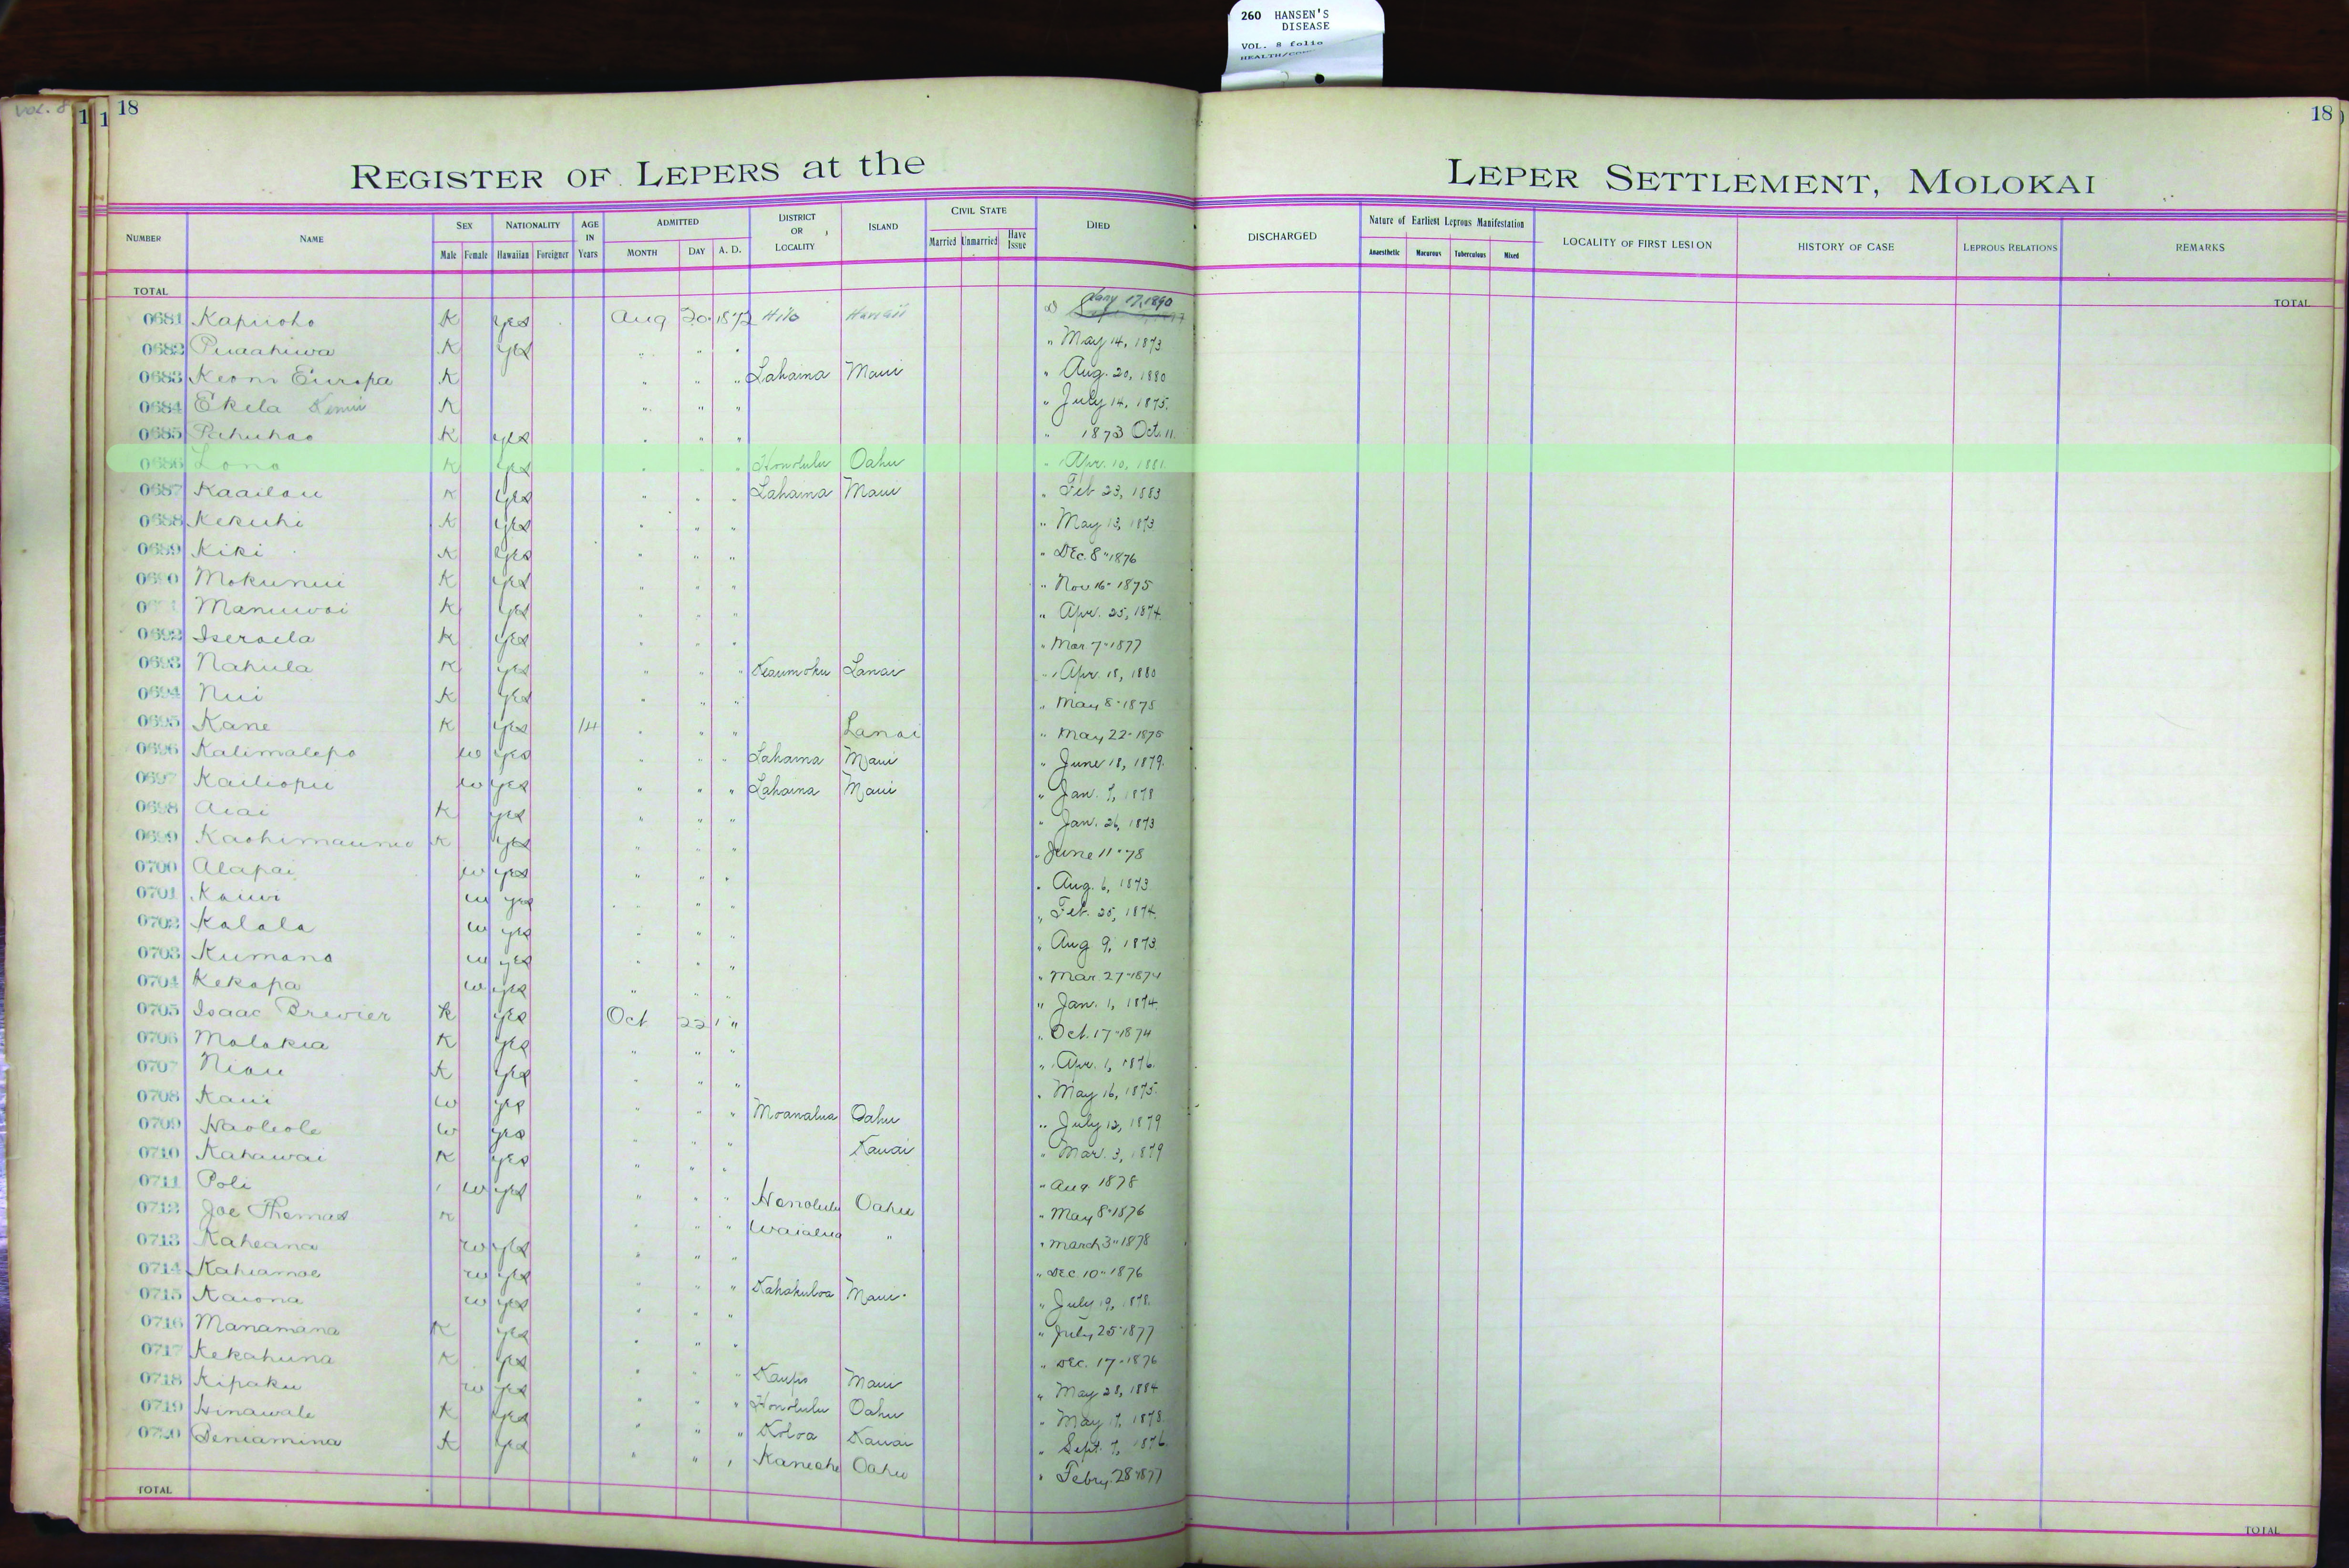 260 HANSEN'S
DISEASE
VOL. 8 folio
Vol. 8
18
18
REGISTER OF LEPERS at the LEPER SETTLEMENT, MOLOKAI
NUMBER NAME SEX NATIONALITY AGE IN Years ADMITTED DISTRICT OR LOCALITY ISLAND CIVIL STATE DIED DISCHARGED Nature of Earliest Leprous Manifestation LOCALITY OF FIRST LESION HISTORY OF CASE LEPROUS RELATIONS REMARKS
Male Female Hawaiian Foreigner MONTH DAY A. D. Married Unmarried Have Issue Anaesthetic Macurous Tuberculous Mixed
TOTAL TOTAL
0681 Kapiioho K yes Aug 20 1872 Hilo Hawaii Jany 17, 1890
0682 Puaahiwa K yes " " " " May 14, 1873
0683 Keoni Europa K " " " Lahaina Maui " Aug. 20, 1880
0684 Ekela K " " " " July 14, 1875.
0685 Pahuhao K yes " " " " 1873 Oct. 11
0686 Lono K yes " " " Honolulu Oahu " Apr. 10, 1881.
0687 Kaailau K yes " " " Lahaina Maui " Feb 23, 1883
0688 Kekuhi K yes " " " " May 13, 1873
0689 Kiki K yes " " " " Dec. 8 " 1876
0690 Mokunui K yes " " " " Nov 16 - 1875
Manuwai K yes " " " " Apr. 25, 1874.
0692 Iseraela K yes " " " " Mar. 7 - 1877
0693 Nahula K yes " " " Keaumoku Lanai " Apr. 18, 1880
0694 Nui K yes " " " " May 8 - 1875
0695 Kane K yes 14 " " " Lanai " May 22 - 1875
0696 Kalimalepo w yes " " " Lahaina Maui " June 18, 1879.
0697 Kailiopu w yes " " " Lahaina Maui " Jan. 7, 1878
0698 Aiai K yes " " " " Jan. 26, 1873
0699 K yes " " " " June 11 - 78
0700 Alapai w yes " " " " Aug. 6, 1873
0701 Kauwi w yes " " " " Feb. 25, 1874.
0702 Kalala w yes " " " " Aug 9, 1873
0703 Kumano w yes " " " " Mar. 27 - 1874
0704 Kekapa w yes " " " " Jan. 1, 1874.
0705 Isaac Brewier K yes Oct 22 " " Oct. 17 - 1874
0706 Molokia K yes " " " " Apr. 1, 1876.
0707 Niau K yes " " " " May 16, 1875.
0708 Kaui w yes " " " Moanalua Oahu " July 12, 1879
0709 Haoleole w yes " " " Kauai " Mar. 3, 1879
0710 Kahawai K yes " " " " Aug 1878
0711 Poli w yes " " " Honolulu Oahu " May 8 - 1876
0712 Joe Thomas K " " " Waialua " " March 3 " 1878
0713 Kaheana w yes " " " " Dec 10 - 1876
0714 Kahiamoe w yes " " " Kahakuloa Maui " July 19, 1878.
0715 Kaiona w yes " " " " July 25 - 1877
0716 Manamana K yes " " " " Dec. 17 - 1876
0717 Kekahuna K yes " " " Kaupo Maui " May 28, 1884
0718 Kipaku w yes " " " Honolulu Oahu " May 17, 1878.
0719 Hinawale K yes " " " Koloa Kauai " Sept. 7, 1876.
0720 Beniamina K yes " " " Kaneohe Oahu " Febry. 28 - 1877
TOTAL TOTAL